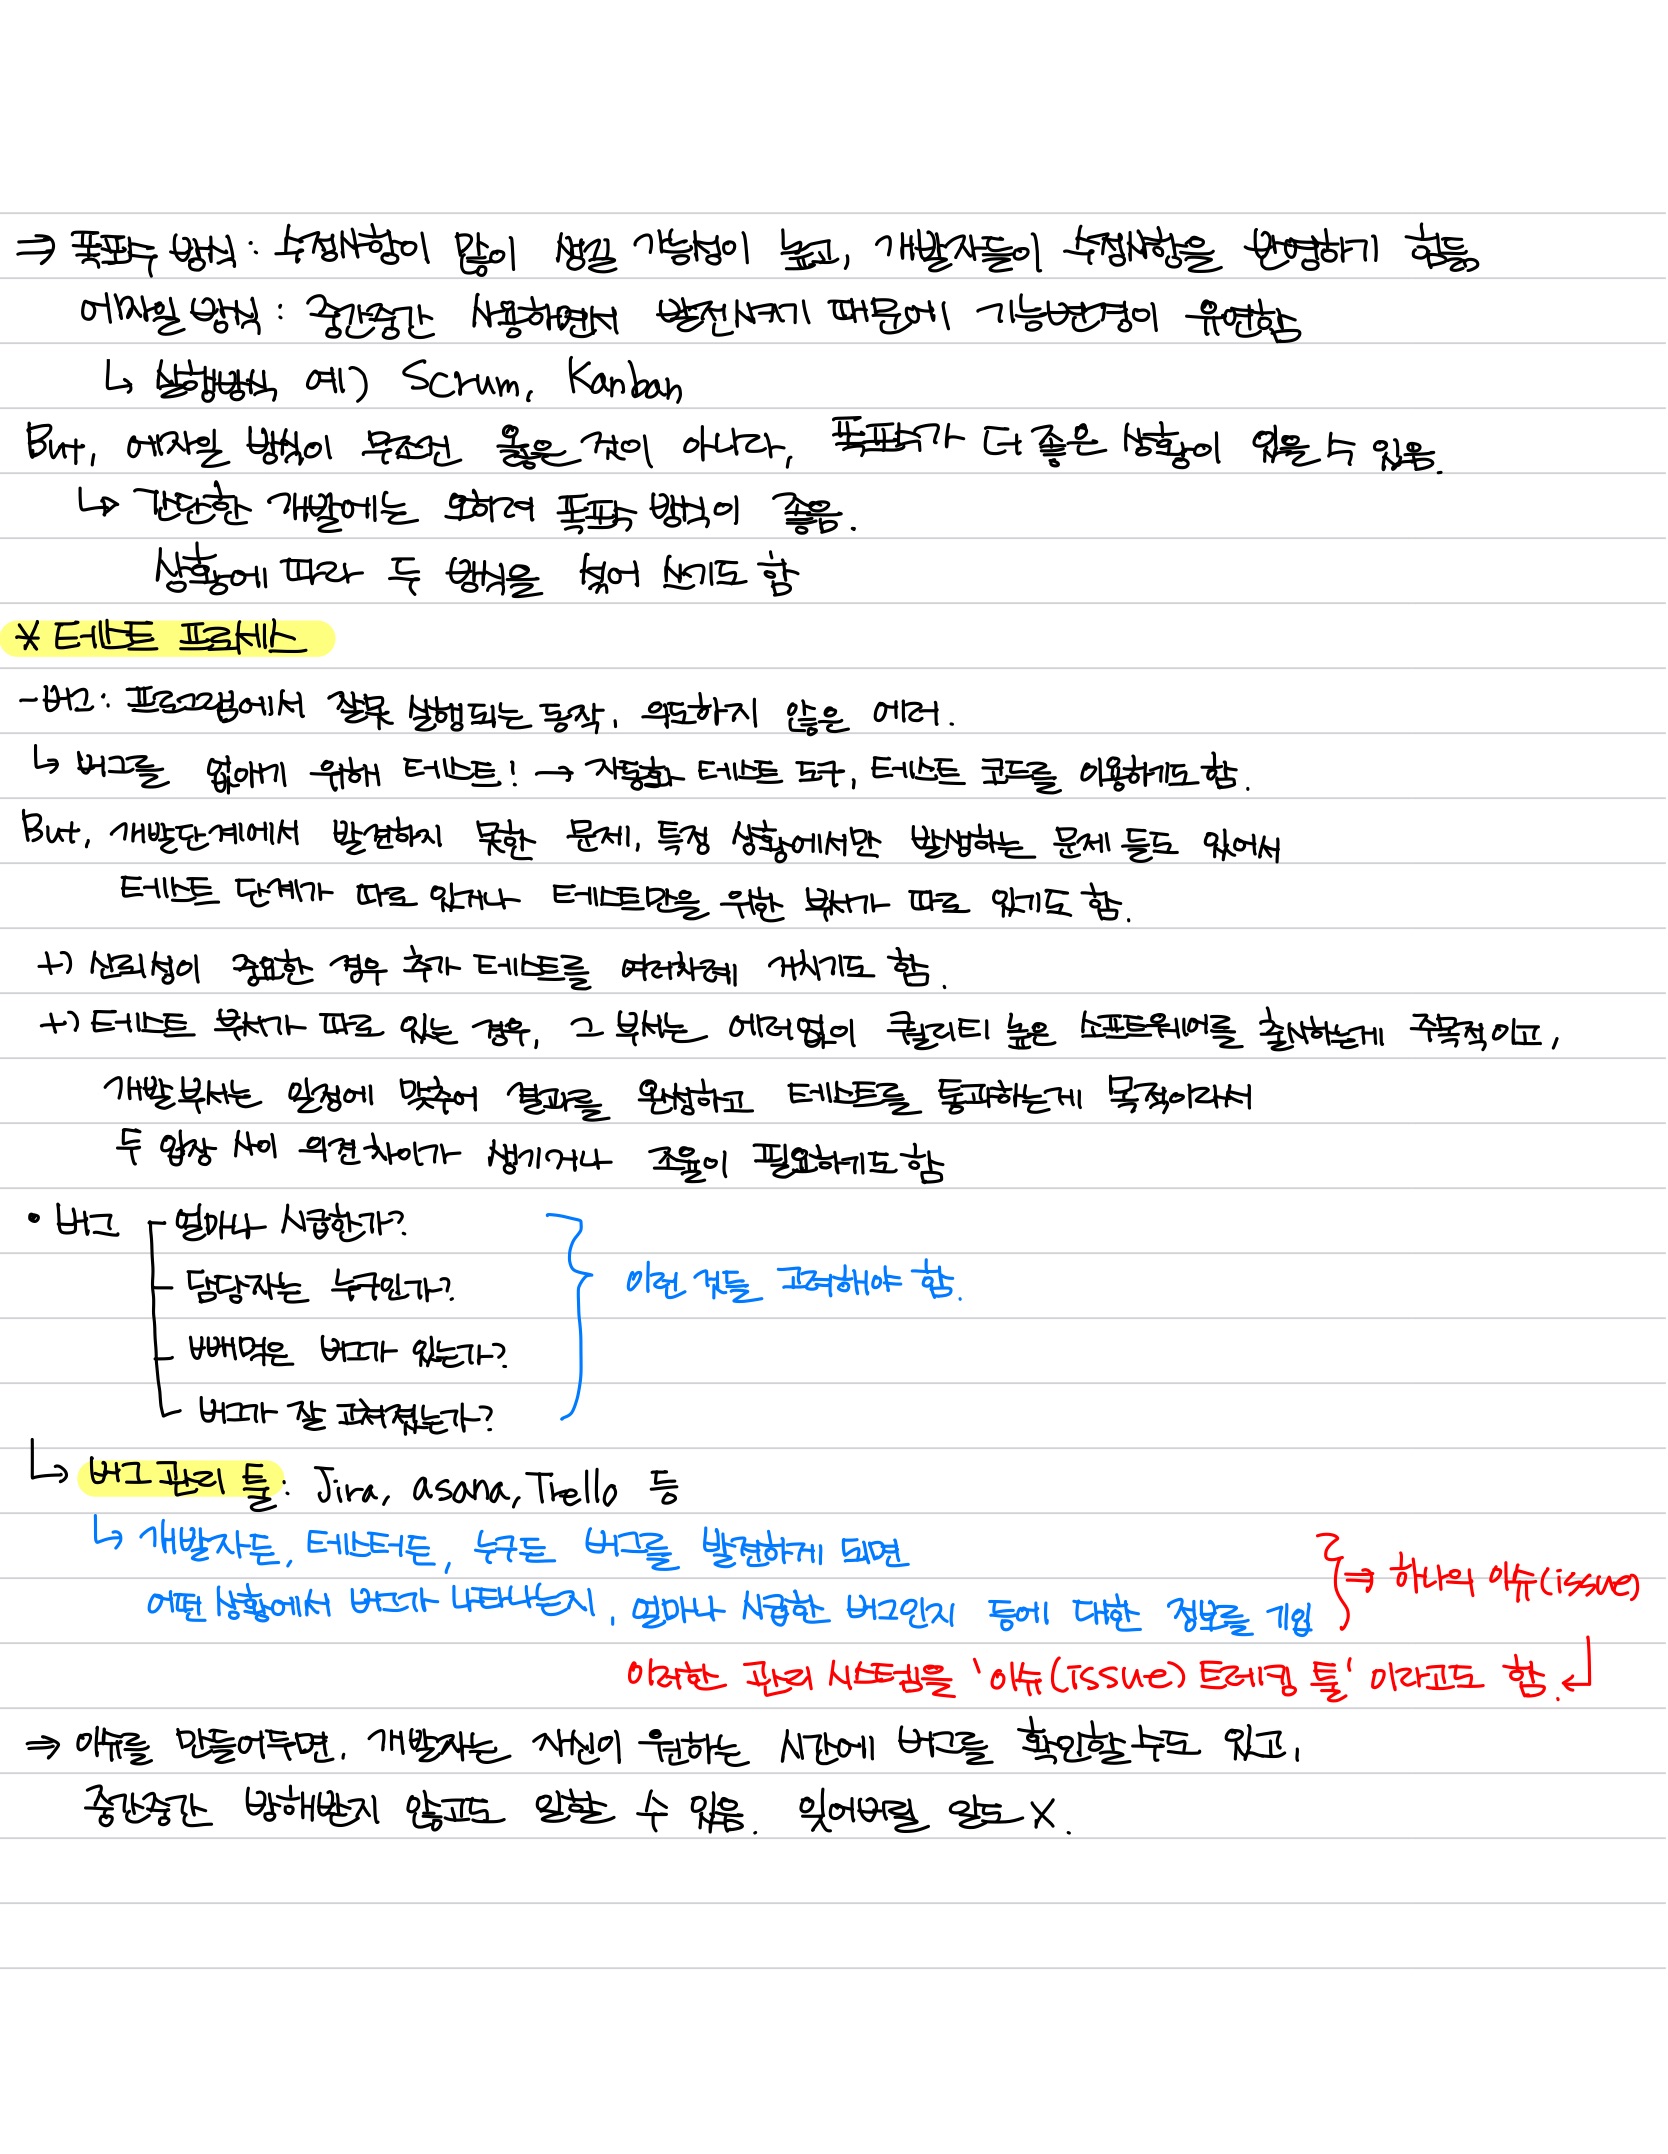 ⇒ 폭포수 방식 : 수정사항이 많이 생길 가능성이 높고, 개발자들이 수정사항을 반영하기 힘듦
에자일 방식 : 중간중간 사용하면서 발전시키기 때문에 기능변경이 유연함
↳ 실행방식 예) Scrum, Kanban
But, 에자일 방식이 무조건 옳은 것이 아니다, 폭포수가 더 좋은 상황이 있을 수 있음.
↳ 간단한 개발에는 오히려 폭포수 방식이 좋음.
상황에 따라 두 방식을 섞어 쓰기도 함
* 테스트 프로세스
- 버그 : 프로그램에서 잘못 실행되는 동작, 의도하지 않은 에러.
↳ 버그를 없애기 위해 테스트! → 자동화 테스트 도구, 테스트 코드를 이용하기도 함.
But, 개발단계에서 발견하지 못한 문제, 특정 상황에서만 발생하는 문제 들도 있어서
테스트 단계가 따로 있거나 테스트만을 위한 부서가 따로 있기도 함.
+) 신뢰성이 중요한 경우 추가 테스트를 여러차례 거치기도 함.
+) 테스트 부서가 따로 있는 경우, 그 부서는 에러없이 퀄리티 높은 소프트웨어를 출시하는게 주목적이고,
개발부서는 일정에 맞추어 결과를 완성하고 테스트를 통과하는게 목적이라서
두 입장 사이 의견차이가 생기거나 조율이 필요하기도 함
• 버그 - 얼마나 시급한가?
- 담당자는 누구인가?
이런 것들 고려해야 함.
- 빼먹은 버그가 있는가?
- 버그가 잘 고쳐졌는가?
↳ 버그 관리 툴 : Jira, asana, Trello 등
↳ 개발자든, 테스터든, 누구든 버그를 발견하게 되면
어떤 상황에서 버그가 나타나는지, 얼마나 시급한 버그인지 등에 대한 정보를 기입
⇒ 하나의 이슈(issue)
이러한 관리 시스템을 '이슈(issue) 트레킹 툴' 이라고도 함.
⇒ 이슈를 만들어두면, 개발자는 자신이 원하는 시간에 버그를 확인할 수도 있고,
중간중간 방해받지 않고도 일할 수 있음. 잊어버릴 일도 X.